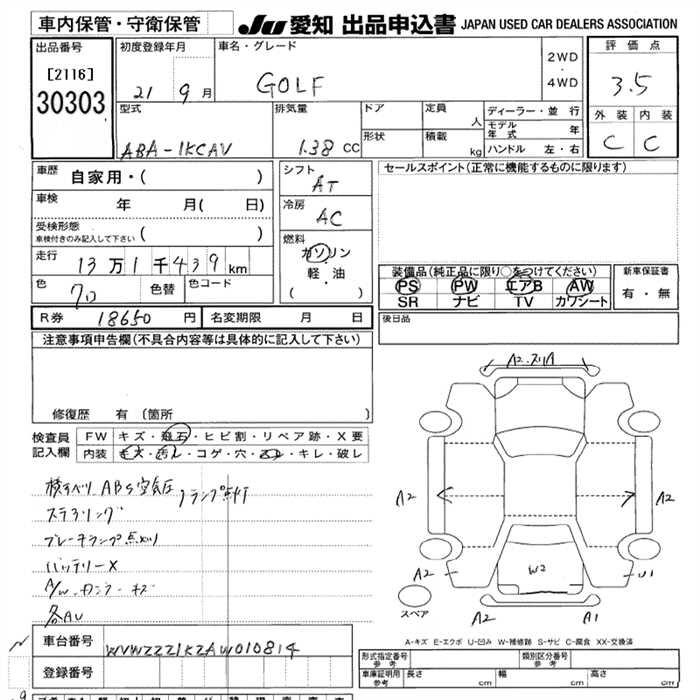 車内保管・守衛保管
JU 愛知 出品申込書 JAPAN USED CAR DEALERS ASSOCIATION
出品番号
[2116]
30303
初度登録年月
21 9月
車名・グレード
GOLF
2WD
・
4WD
評価点
3.5
外装 内装
C C
型式
ABA-1KCAV
排気量
1.38 CC
ドア
形状
定員 人
積載 kg
ディーラー・並行
モデル年式 年
ハンドル 左・右
車歴 自家用・( )
車検 年 月( 日)
受検形態
車検付きのみ記入して下さい ( )
走行 13万1千439km
色 色替 色コード
シフト
AT
冷房
AC
燃料
ガソリン
・
軽・油
( )
セールスポイント(正常に機能するものに限ります)
装備品(純正品に限り○をつけてください)
PS PW エアB AW
SR ナビ TV カワシート
新車保証書
有・無
R券 18650円 名変期限 月 日
後日品
注意事項申告欄(不具合内容等は具体的に記入して下さい)
修復歴 有 [箇所 ]
検査員
記入欄
FW キズ・飛石・ヒビ割・リペア跡・X要
内装 キズ・汚レ・コゲ・穴・スレ・キレ・破レ
ABS空気圧
ランプ点灯
ステアリング
ブレーキランプ点灯
バッテリーX
各AU
A2
A2
A2
A2
U1
W2
A2
A1
スペア
A-キズ E-エクボ U-凹み W-補修跡 S-サビ C-腐食 XX-交換済
車台番号 WVWZZZ1KZAW010814
登録番号
形式指定番号
参考
類別区分番号
参考
車庫証明用
参考
長さ cm 幅 cm 高さ cm